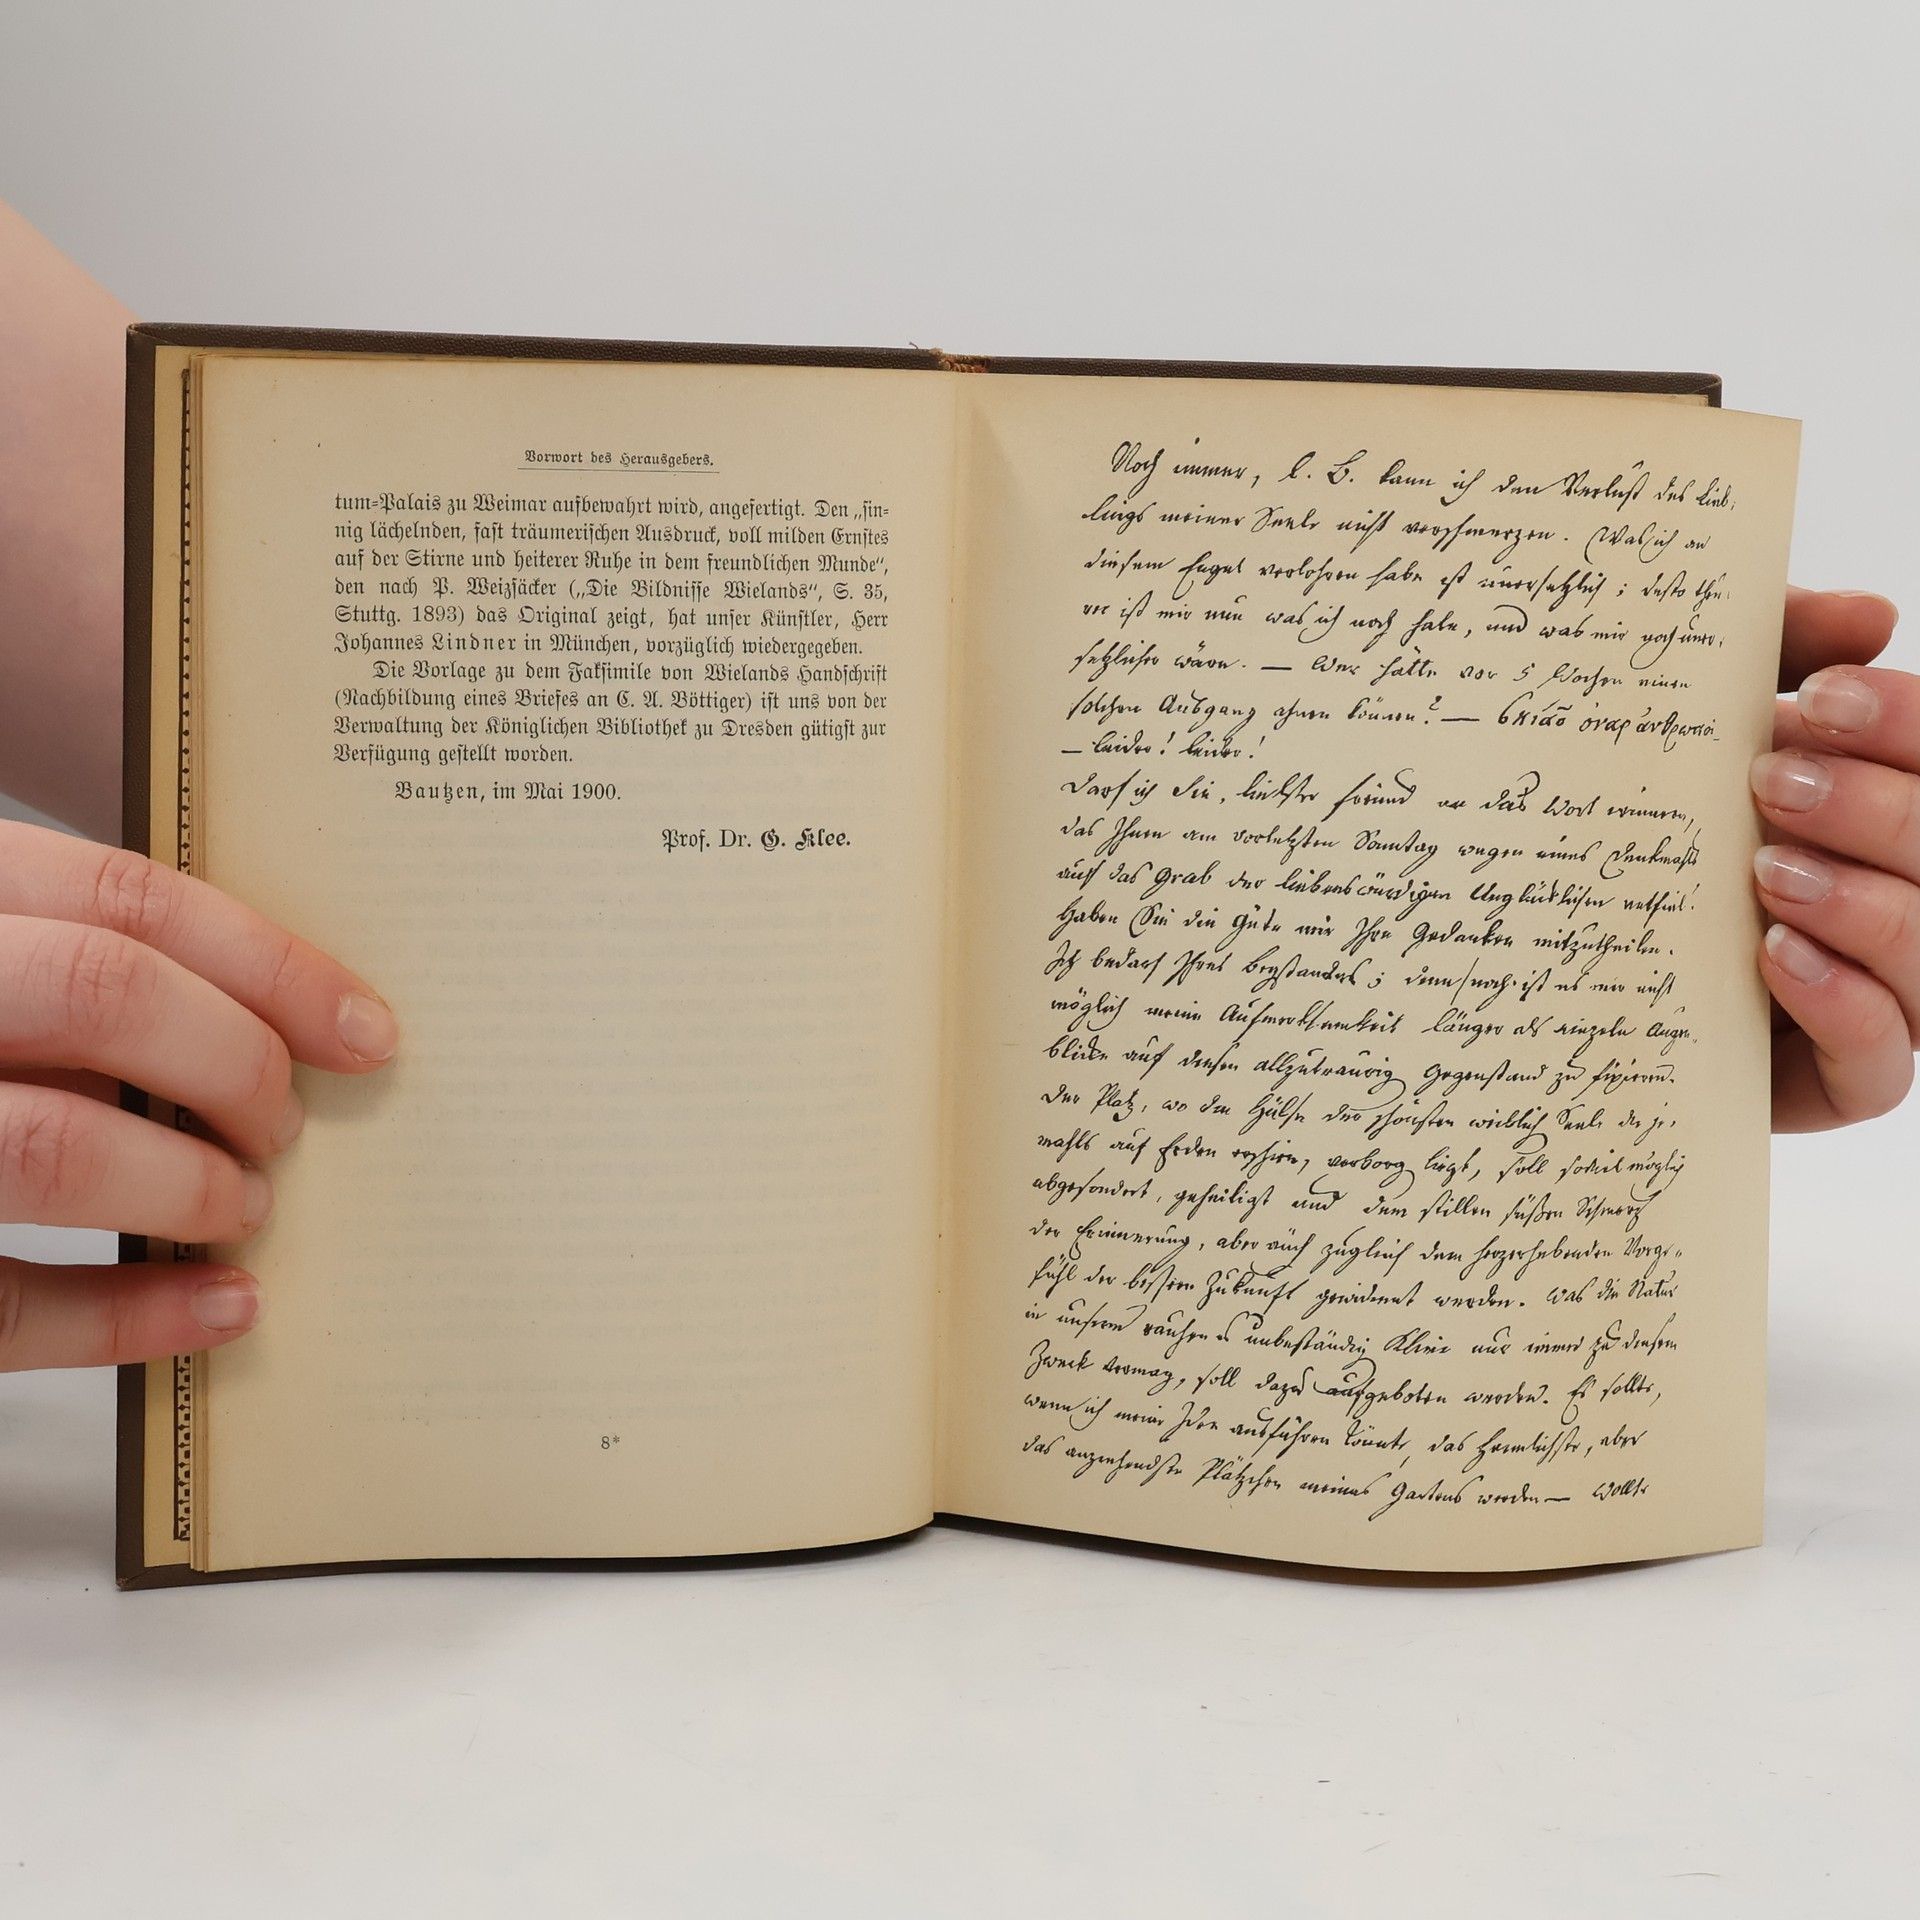 Vorwort des Herausgebers.
tum-Palais zu Weimar aufbewahrt wird, angefertigt. Den „sin-
nig lächelnden, fast träumerischen Ausdruck, voll milden Ernstes
auf der Stirne und heiterer Ruhe in dem freundlichen Munde“,
den nach P. Weizsäcker („Die Bildnisse Wielands“, S. 35,
Stuttg. 1893) das Original zeigt, hat unser Künstler, Herr
Johannes Lindner in München, vorzüglich wiedergegeben.
Die Vorlage zu dem Faksimile von Wielands Handschrift
(Nachbildung eines Briefes an C. A. Böttiger) ist uns von der
Verwaltung der Königlichen Bibliothek zu Dresden gütigst zur
Verfügung gestellt worden.
Bautzen, im Mai 1900.
Prof. Dr. G. Klee.
8*
Noch immer, l. B. kann ich den Verlust des Lieb-
lings meiner Seele nicht verschmerzen. Was ich an
diesem Engel verlohren habe ist unersetzlich; desto theu-
rer ist mir nun was ich noch habe, und was mir noch uner-
setzlicher wäre. — Wer hätte vor 5 Wochen einen
solchen Ausgang ahnen können? — σκιᾶς ὄναρ ἄνθρωποι
— leider! leider!
Darf ich Sie, liebster Freund an das Wort erinnern,
das Ihnen am vorletzten Sonntag wegen eines Denkmahls
auf das Grab der liebenswürdigen Unglücklichen entfiel?
Haben Sie die Güte mir Ihre Gedanken mitzutheilen.
Ich bedarf Ihres Beystandes; denn noch ist es mir nicht
möglich meine Aufmerksamkeit länger als einzeln Augen-
blicke auf diesen allzutraurig Gegenstand zu fixieren.
Der Platz, wo die Hülse der schönsten weiblich Seele die je-
mahls auf Erden erschien, verborg liegt, soll soviel möglich
abgesondert, geheiligt und dem stillen süßen Schmerz
der Erinnerung, aber auch zugleich dem herzerhebenden Vorge-
fühl der bessern Zukunft gewidmet werden. Was die Natur
in unserm rauhen unbeständig Klima nur immer zu diesem
Zweck vermag, soll dazu aufgeboten werden. Es sollte,
wenn ich meine Idee ausführen könnte, das heimlichste, aber
das anziehendste Plätzchen meines Gartens werden — Wollte